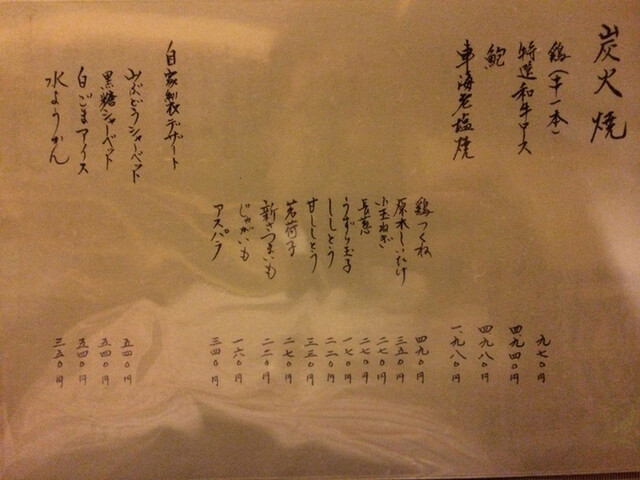 炭火焼
鶏 九七〇円
特選和牛ロース 四、九四〇円
鮑 四、九八〇円
車海老塩焼 一、九八〇円
鶏つくね 四九〇円
原木しいたけ 三五〇円
小玉ねぎ 二七〇円
長葱 二七〇円
うずら玉子 一七〇円
ししとう 二二〇円
甘ししとう 三三〇円
茗荷子 二七〇円
新さつまいも 二二〇円
じゃがいも 一六〇円
アスパラ 三四〇円
自家製デザート
山ぶどうシャーベット 五四〇円
黒糖シャーベット 五四〇円
白ごまアイス 五四〇円
水ようかん 三五〇円